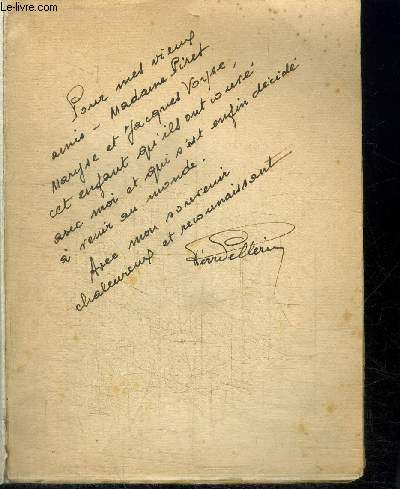 Le-Livre.com
Pour mes vieux
amis - Madame Piret
Maryse et Jacques Voyse,
cet enfant qu'ils ont couvé
avec moi et qui s'est enfin décidé
à venir au monde.
Avec mon souvenir
chaleureux et reconnaissant
Pierre Pellerin